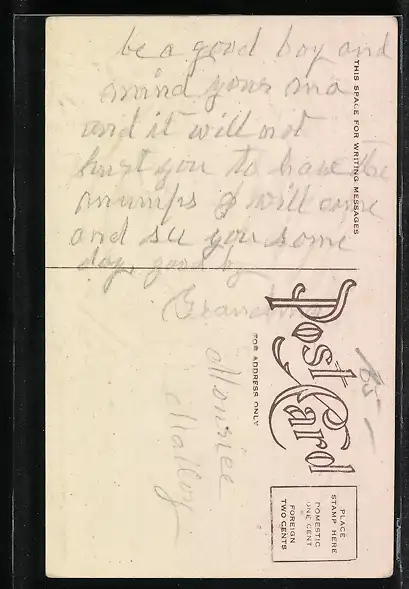 be a good boy and
mind your ma
and it will not
hurt you to have the
mumps I will come
and see you some
day good by
Grandma
THIS SPACE FOR WRITING MESSAGES
Post Card
FOR ADDRESS ONLY
PLACE
STAMP HERE
DOMESTIC
ONE CENT
FOREIGN
TWO CENTS